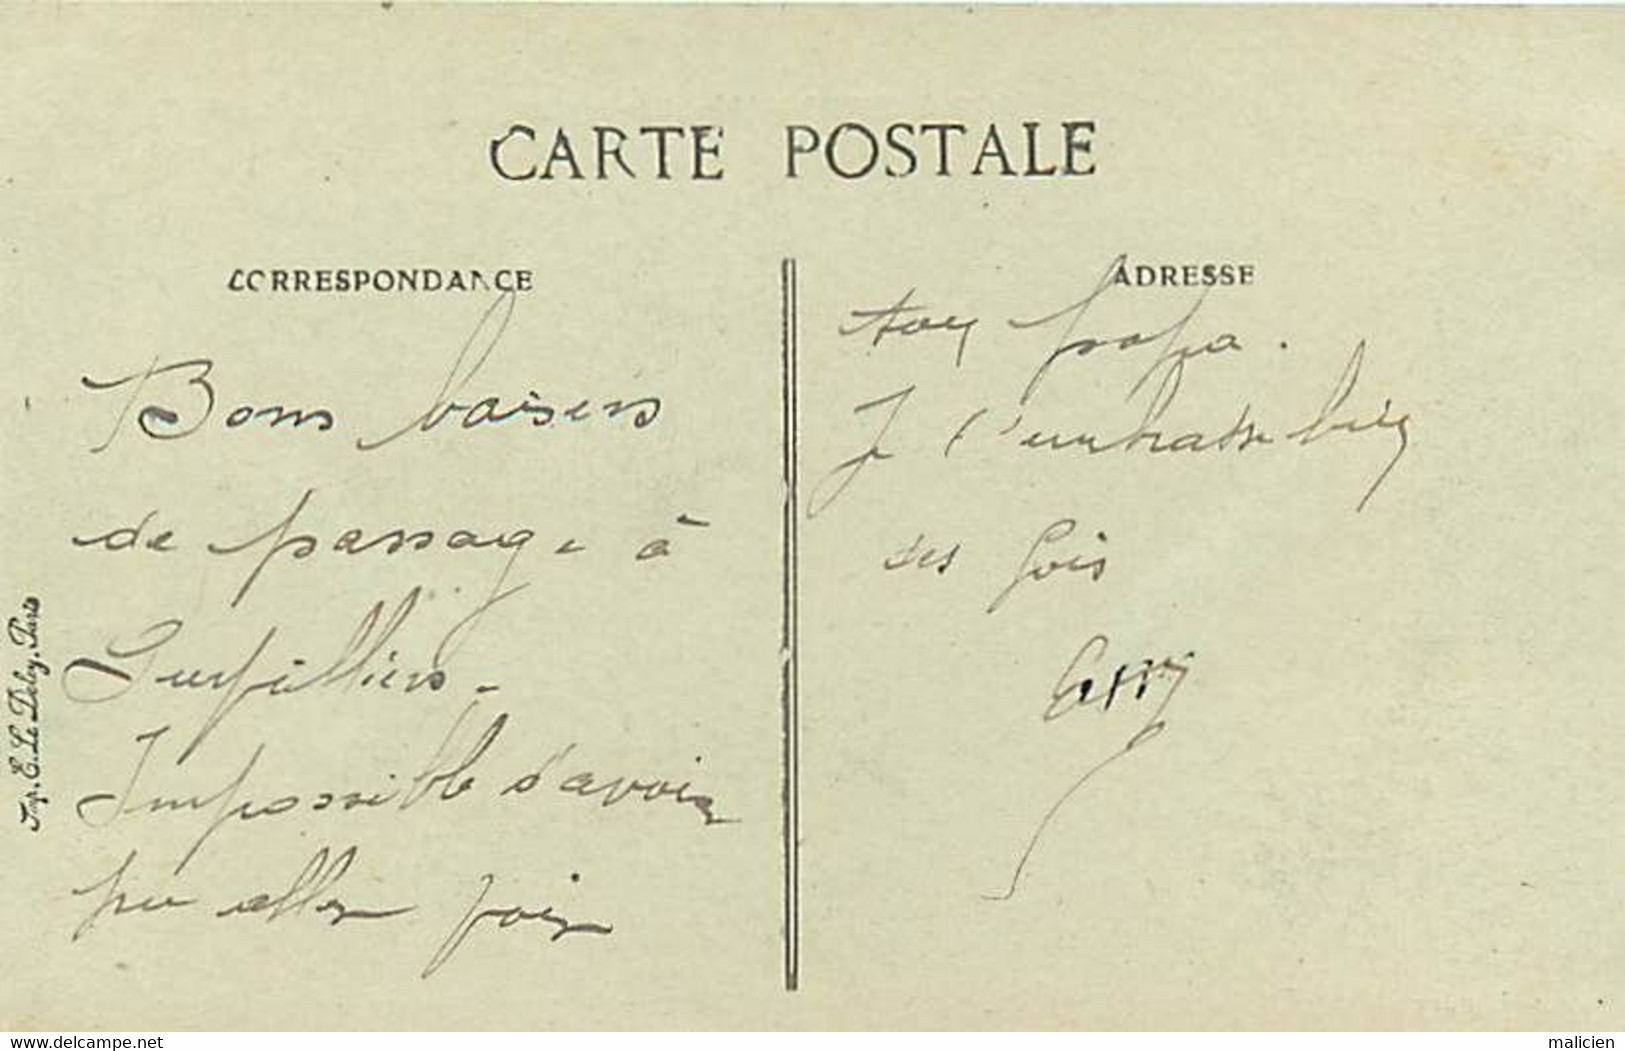 CARTE POSTALE
CORRESPONDANCE
Bons baisers
de passage à
Impossible d'avoir
pu aller voir
ADRESSE
ton papa.
Je t'embrasse bien
des fois
Imp. E. Le Deley, Paris
www.delcampe.net
malicien